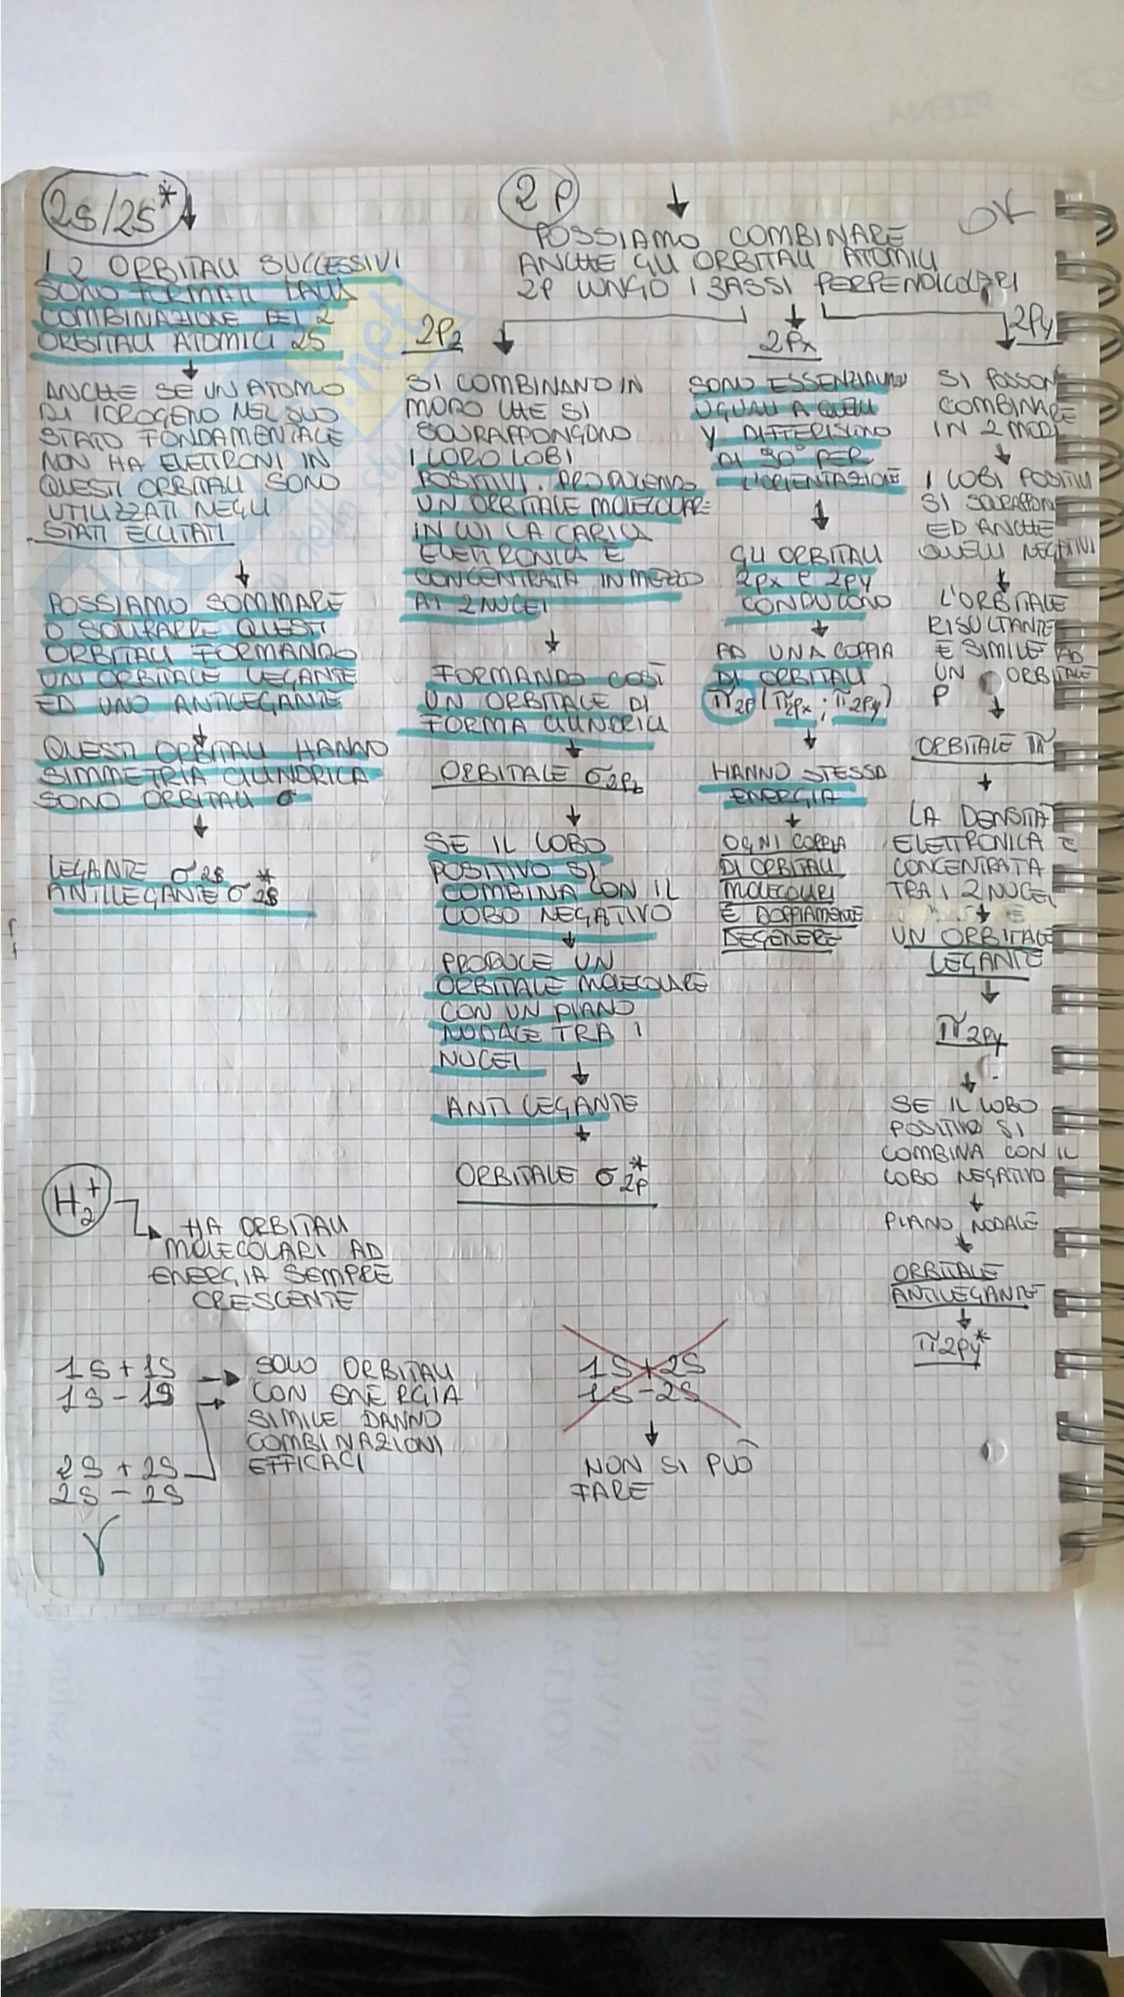 2S/2S*
I 2 ORBITALI SUCCESSIVI
SONO FORMATI DALLA
COMBINAZIONE DEI 2
ORBITALI ATOMICI 2S
ANCHE SE UN ATOMO
DI IDROGENO NEL SUO
STATO FONDAMENTALE
NON HA ELETTRONI IN
QUESTI ORBITALI SONO
UTILIZZATI NEGLI
STATI ECCITATI
POSSIAMO SOMMARE
O SOTTRARRE QUESTI
ORBITALI FORMANDO
UN ORBITALE LEGANTE
ED UNO ANTILEGANTE
QUESTI ORBITALI HANNO
SIMMETRIA CILINDRICA
SONO ORBITALI σ
LEGANTE σ2S
ANTILEGANTE σ*2S
2P
OK
POSSIAMO COMBINARE
ANCHE GLI ORBITALI ATOMICI
2P LUNGO I 3 ASSI PERPENDICOLARI
2Pz
SI COMBINANO IN
MODO CHE SI
SOVRAPPONGONO
I LORO LOBI
POSITIVI. PRODUCENDO
UN ORBITALE MOLECOLARE
IN CUI LA CARICA
ELETTRONICA È
CONCENTRATA IN MEZZO
AI 2 NUCLEI
FORMANDO COSÌ
UN ORBITALE DI
FORMA CILINDRICA
ORBITALE σ2P
SE IL LOBO
POSITIVO SI
COMBINA CON IL
LOBO NEGATIVO
PRODUCE UN
ORBITALE MOLECOLARE
CON UN PIANO
NODALE TRA I
NUCLEI
ANTILEGANTE
ORBITALE σ*2P
2Px
SONO ESSENZIALMENTE
UGUALI A QUELLI
Y DIFFERISCONO
DI 90° PER
L'ORIENTAZIONE
GLI ORBITALI
2px e 2py
CONDUCONO
AD UNA COPPIA
DI ORBITALI
π2p (π2px ; π2py)
HANNO STESSA
ENERGIA
OGNI COPPIA
DI ORBITALI
MOLECOLARI
È DOPPIAMENTE
DEGENERE
2Py
SI POSSONO
COMBINARE
IN 2 MODI
I LOBI POSITIVI
SI SOVRAPPONGONO
ED ANCHE
QUELLI NEGATIVI
L'ORBITALE
RISULTANTE
È SIMILE AD
UN ORBITALE
P
ORBITALE π
LA DENSITÀ
ELETTRONICA È
CONCENTRATA
TRA I 2 NUCLEI
È
UN ORBITALE
LEGANTE
π2py
SE IL LOBO
POSITIVO SI
COMBINA CON IL
LOBO NEGATIVO
PIANO NODALE
ORBITALE
ANTILEGANTE
π2py*
H2+
HA ORBITALI
MOLECOLARI AD
ENERGIA SEMPRE
CRESCENTE
1S + 1S
1S - 1S
2S + 2S
2S - 2S
SOLO ORBITALI
CON ENERGIA
SIMILE DANNO
COMBINAZIONI
EFFICACI
1S + 2S
1S - 2S
NON SI PUÒ
FARE